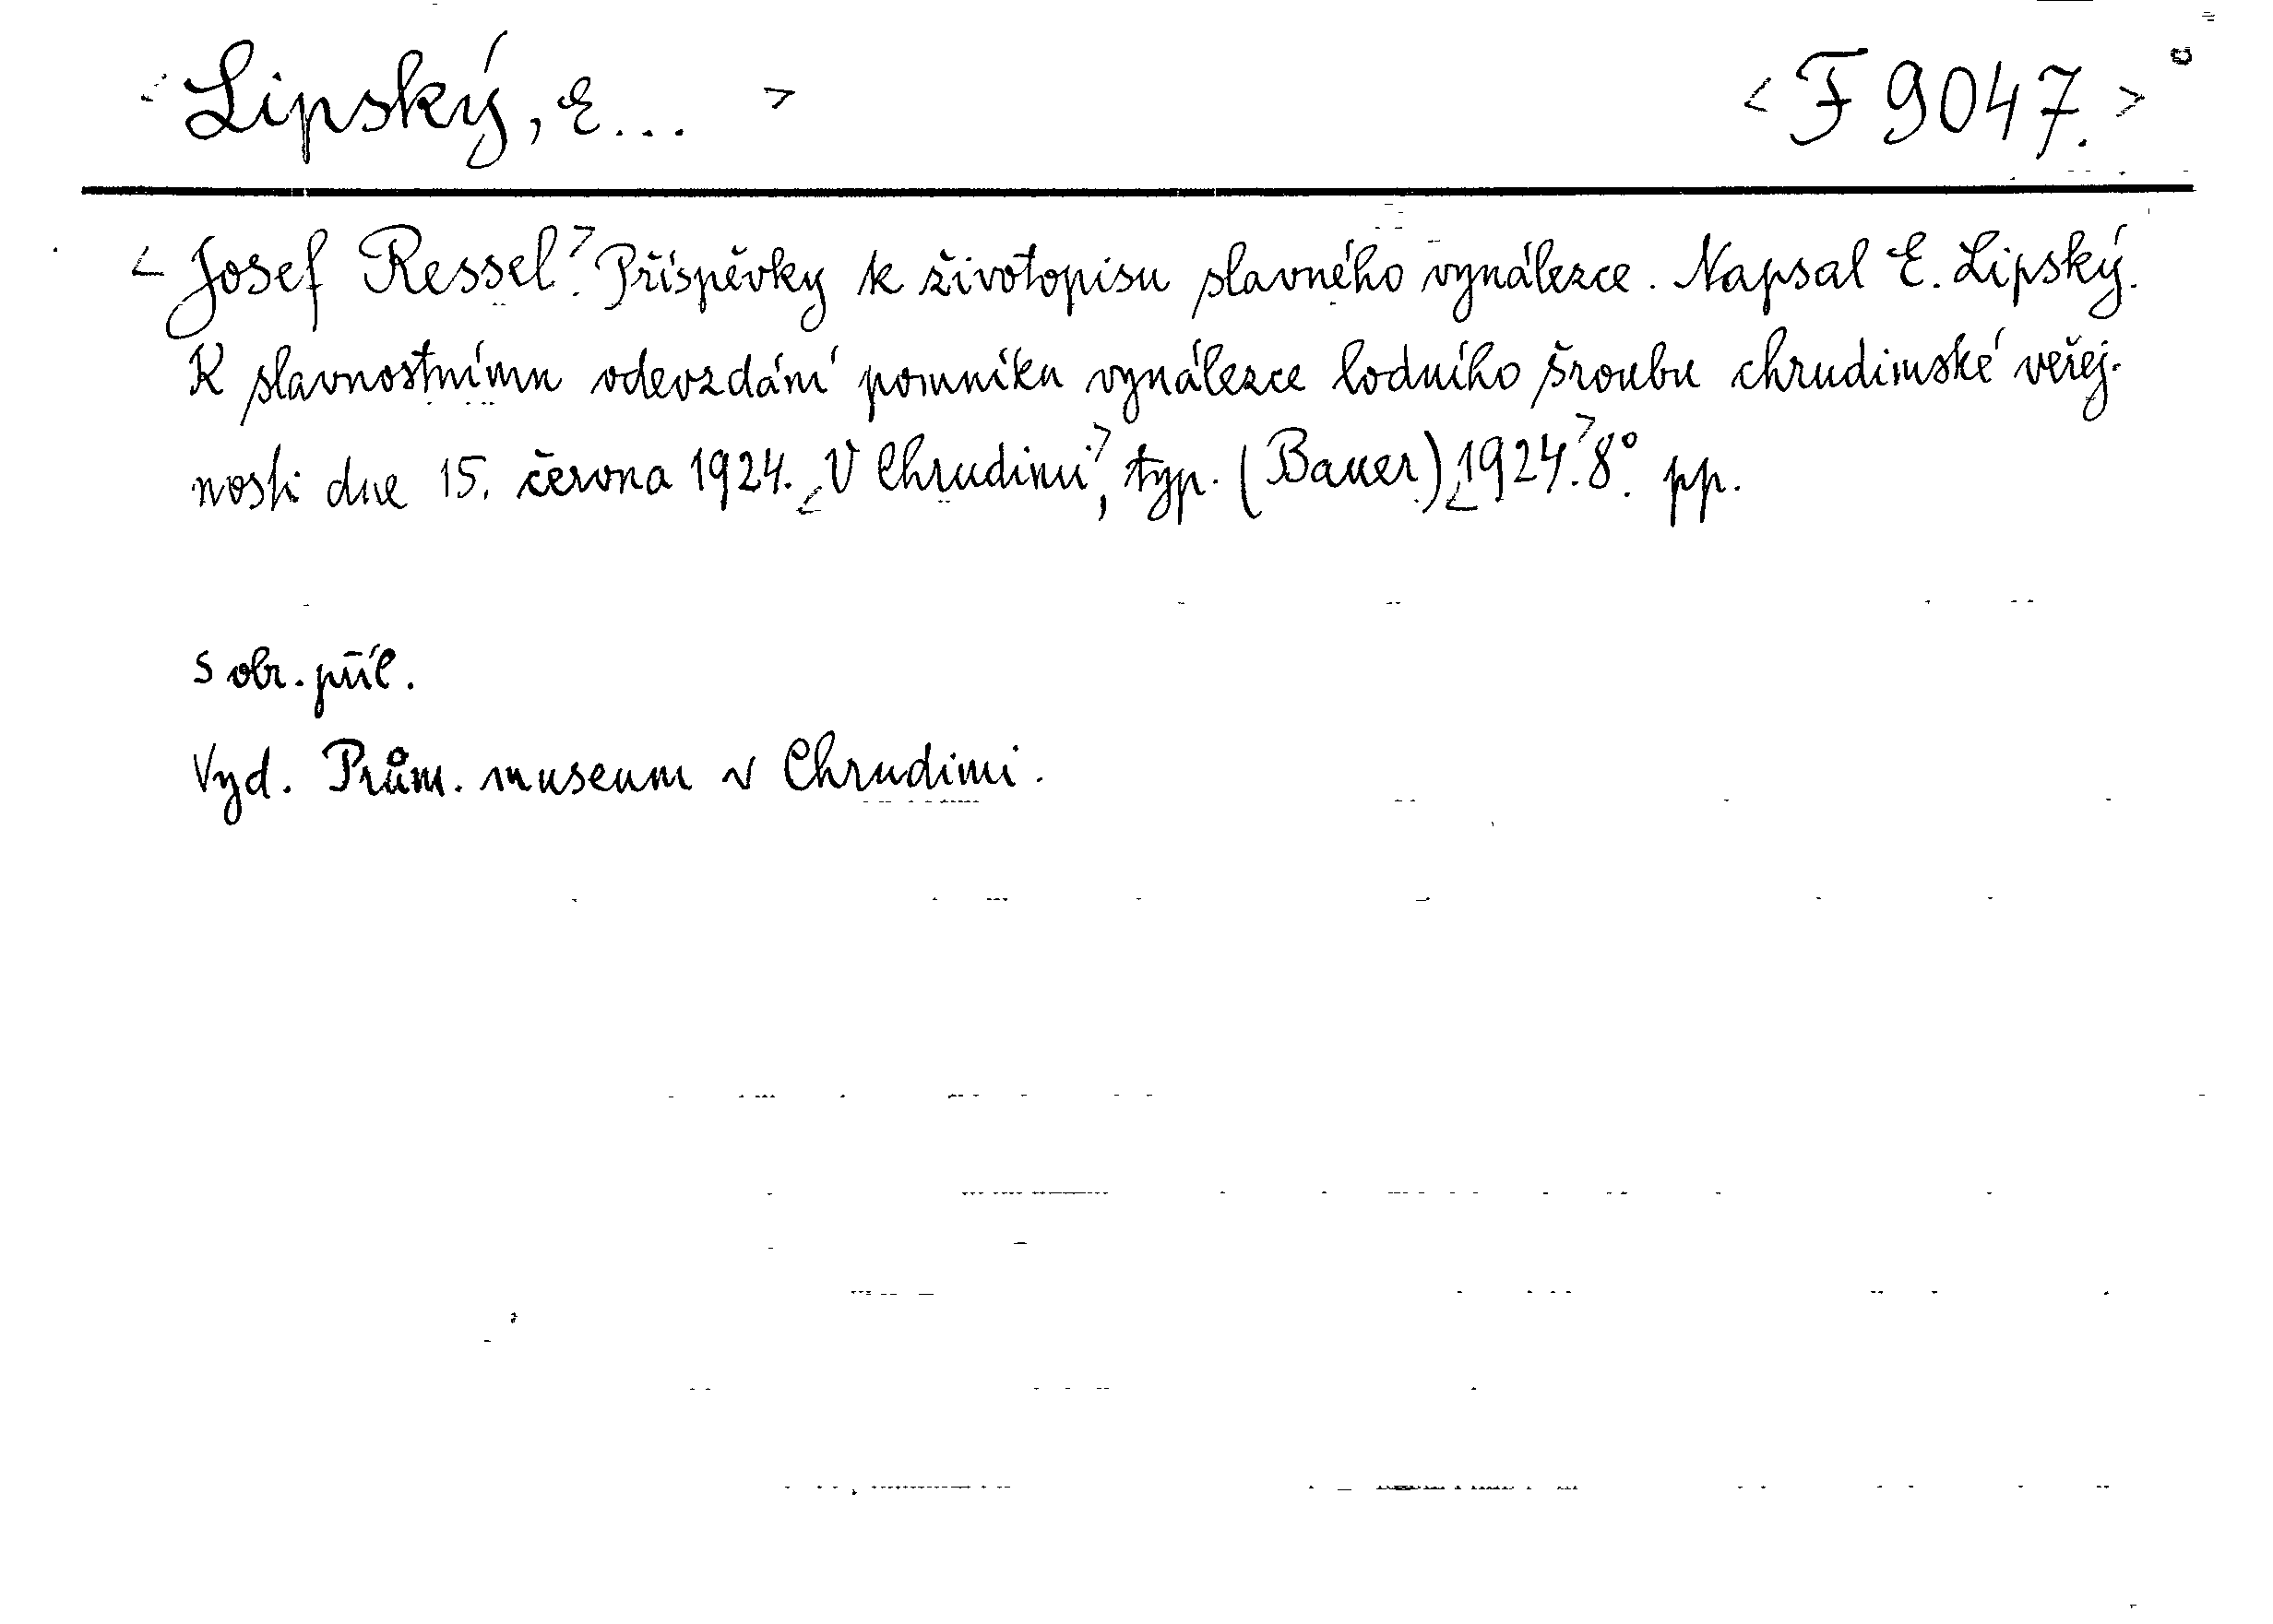 <Lipský, E... > <F 9047.>
<Josef Ressel>. Příspěvky k životopisu slavného vynálezce. Napsal E. Lipský.
K slavnostnímu odevzdání pomníku vynálezce lodního šroubu chrudimské veřej-
nosti dne 15. června 1924. <V Chrudimi>, typ. (Bauer) <1924>. 8°. pp.
S obr. příl.
Vyd. Prům. museum v Chrudimi.